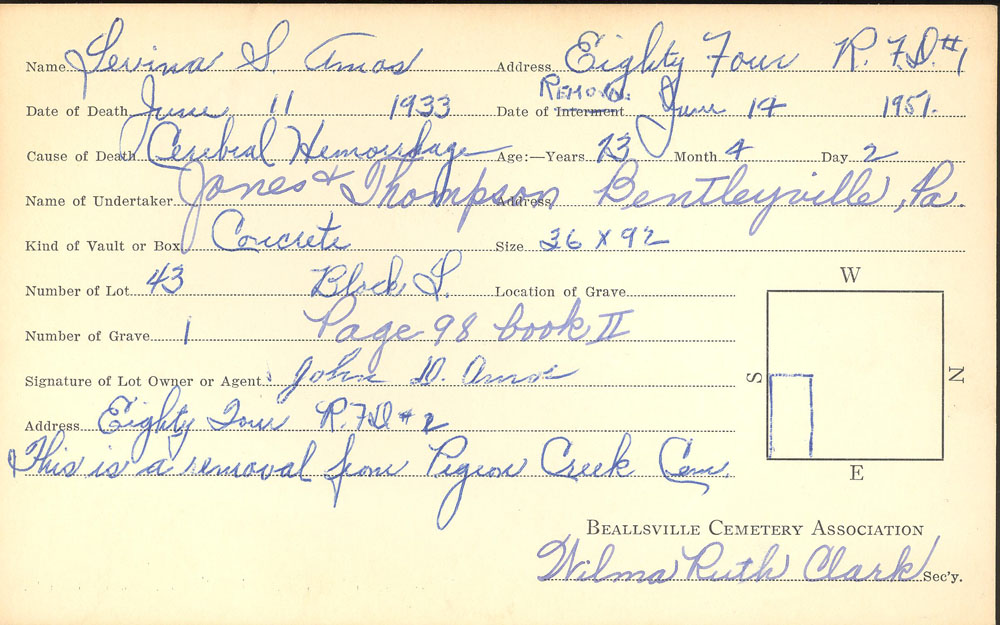 Name Levina S. Amos Address Eighty Four R.F.D.#1
Removal
Date of Death June 11 1933 Date of Interment June 14 1951.
Cause of Death Cerebral Hemorrhage Age:—Years 73 Month 4 Day 2
Name of Undertaker Jones & Thompson Address Bentleyville, Pa.
Kind of Vault or Box Concrete Size 36 x 92
W
Number of Lot 43 Block L. Location of Grave
Number of Grave 1 Page 98 book II
S N
Signature of Lot Owner or Agent John D. Amos
Address Eighty Four R.F.D # 2
This is a removal from Pigeon Creek Cem.
E
Beallsville Cemetery Association
Wilma Ruth Clark Sec'y.